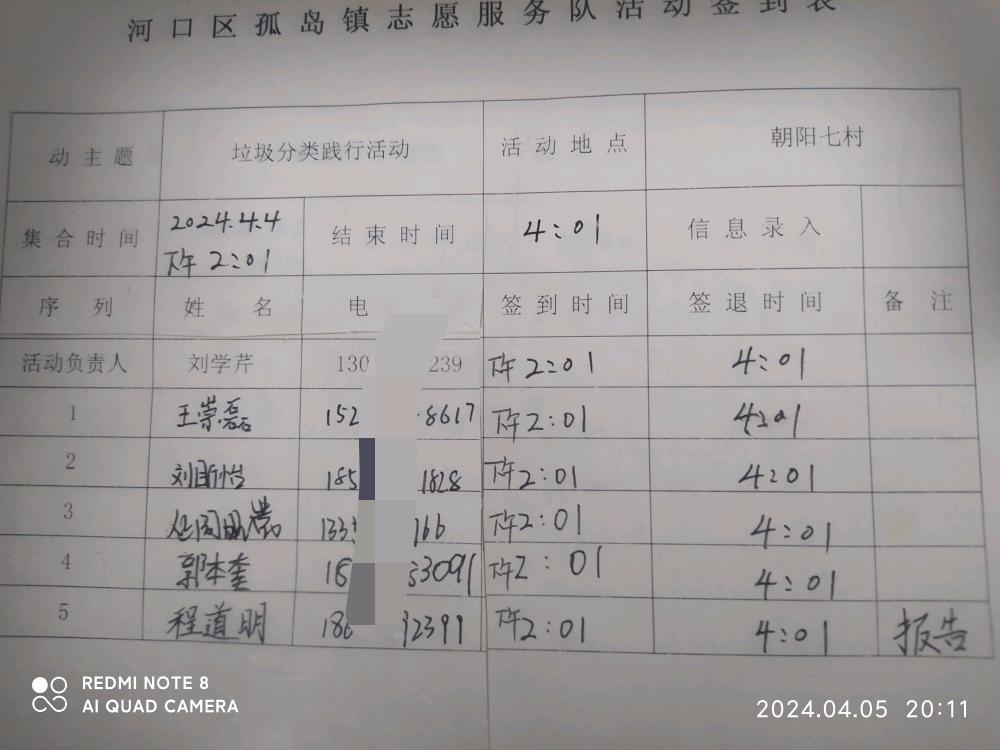 河口区孤岛镇志愿服务队活动签到表
动主题 垃圾分类践行活动 活动地点 朝阳七村
集合时间 2024.4.4 下午 2:01 结束时间 4:01 信息录入
序列 姓名 电 签到时间 签退时间 备注
活动负责人 刘学芹 130 239 下午 2:01 4:01
1 王崇磊 152 8617 下午 2:01 4:01
2 刘 185 1828 下午 2:01 4:01
3 133 166 下午 2:01 4:01
4 郭本奎 18 53091 下午 2:01 4:01
5 程道明 186 92399 下午 2:01 4:01 报告
REDMI NOTE 8
AI QUAD CAMERA
2024.04.05 20:11